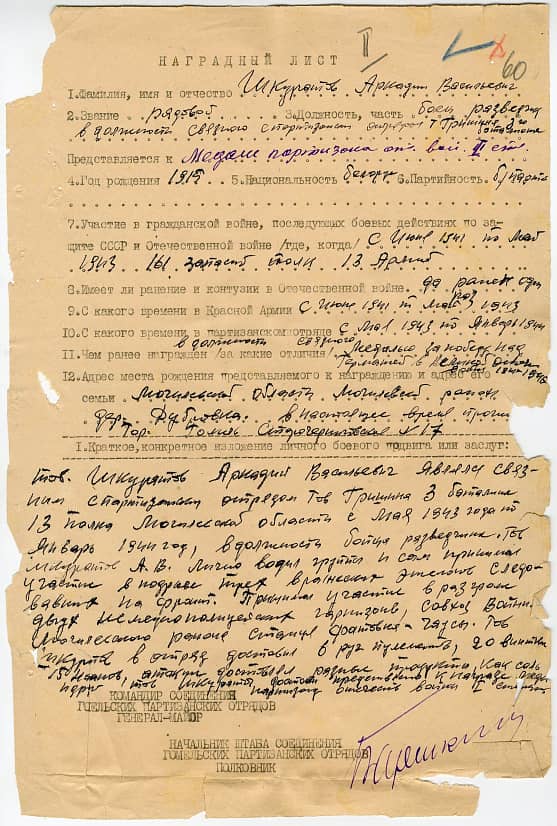 II
60
НАГРАДНЫЙ ЛИСТ
1.Фамилия, имя и отчество Шкуратов Аркадий Васильевич
2.Звание рядовой 3.Должность, часть боец разведчик
в должности связного с партизанским отрядом т Гришина 3го батальона
Представляется к Медали партизана от. вой. II ст.
4.Год рождения 1915 5.Национальность белорус 6.Партийность б/парт
7.Участие в гражданской войне, последующих боевых действиях по за-
щите СССР и Отечественной войне /где, когда/ с Июня 1941 по Май
1943 161 запасной полк 13 Армии
8.Имеет ли ранение и контузии в Отечественной войне. да ранен один раз
9.С какого времени в Красной Армии с Июня 1941 по Май 1943
10.С какого времени в партизанском отряде с Мая 1943 по Январь 1944
в должности связного
11.Чем ранее награжден /за какие отличия/ Медалью за победу над
Германией в Великой Отеч. войне 1941-1945
12.Адрес места рождения представляемого к награждению и адрес его
семьи Могилевской области Могилевский район
дер. Дубровка. в настоящее время прож.
гор. Гомель №17
I.Краткое,конкретное изложение личного боевого подвига или заслуг:
тов. Шкуратов Аркадий Васильевич являлся связ-
ным с партизанским отрядом Тов Гришина 3 батальона
13 полка Могилевской области с Мая 1943 года по
Январь 1944 год, в должности бойца разведчик. Тов
Шкуратов А.В. Лично водил группы и сам принимал
участие в подрыве трех вражеских эшелонов следо-
вавших на фронт. Принимал участие в разгроме
двух немецко полицейских гарнизонов, совхоз
Могилевского района станция Чаусы. Тов
Шкуратов в отряд доставил 6 руч пулеметов, 20 винтовок
15 наганов, а также доставлял разные продукты, как соль
тов Шкуратов достоин представления к награде медали
партизану отечеств войны II степени
КОМАНДИР СОЕДИНЕНИЯ
ГОМЕЛЬСКИХ ПАРТИЗАНСКИХ ОТРЯДОВ
ГЕНЕРАЛ-МАЙОР
НАЧАЛЬНИК ШТАБА СОЕДИНЕНИЯ
ГОМЕЛЬСКИХ ПАРТИЗАНСКИХ ОТРЯДОВ
ПОЛКОВНИК